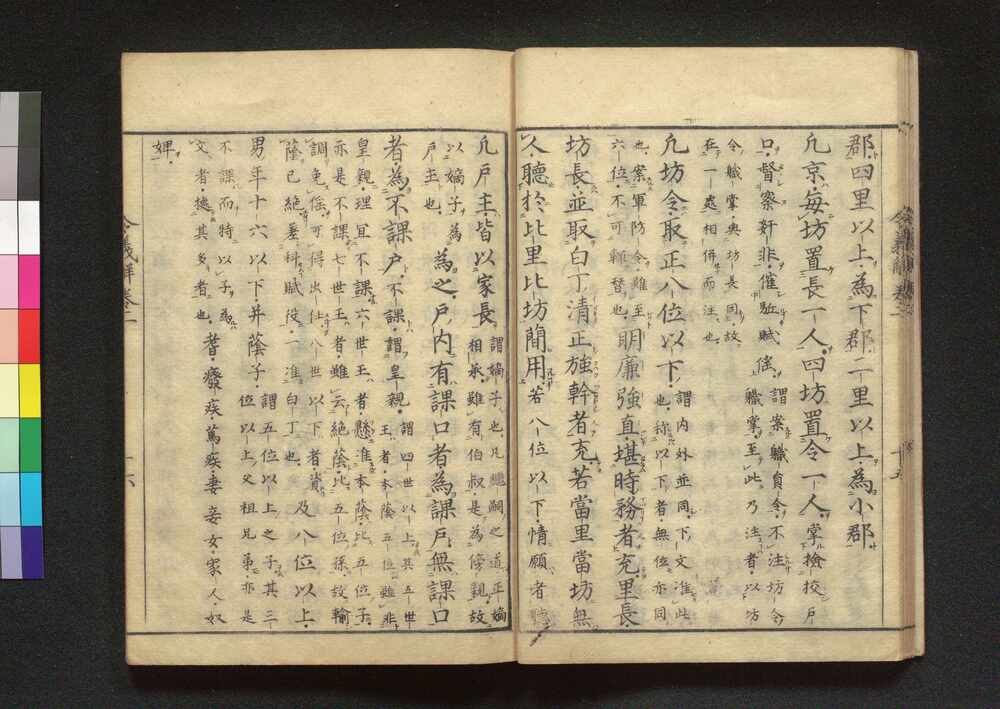 郡四里以上為下郡二里以上為小郡
凡京毎坊置長一人四坊置令一人掌撿挍戸
口督察奸非催駈賦徭
謂案職員令不注坊令
職掌至此乃注者以坊
令職掌與坊長同故
在一處相併而注也
凡坊令取正八位以下
謂内外並同下文准此
也称以下者無位亦同
也案軍防令雖至
六位不可輙替也
明廉強直堪時務者充里長
坊長並取白丁清正強幹者充若當里當坊無
人聴於比里比坊簡用若八位以下情願者聴
令義解巻二
十五
凡戸主皆以家長
謂嫡子也凡継嗣之道正嫡
相承雖有伯叔是為傍親故
以嫡子為
戸主也
為之戸内有課口者為課戸無課口
者為不課戸
不課謂皇親
謂四世以上其五世
王者本蔭五位雖非
皇親理宜不課六世王者懸准本蔭比五位子
亦是不課七世王者雖云絶蔭比五位孫故輸
調免徭可得出仕八世以下者資
蔭已絶差科賦役一准白丁也
及八位以上
男年十六以下并蔭子
謂五位以上之子其三
位以上父祖兄弟亦是
不課而特以子為
文者摠其多者也
耆癈疾篤疾妻妾女家人奴
婢
令義解巻二
十六